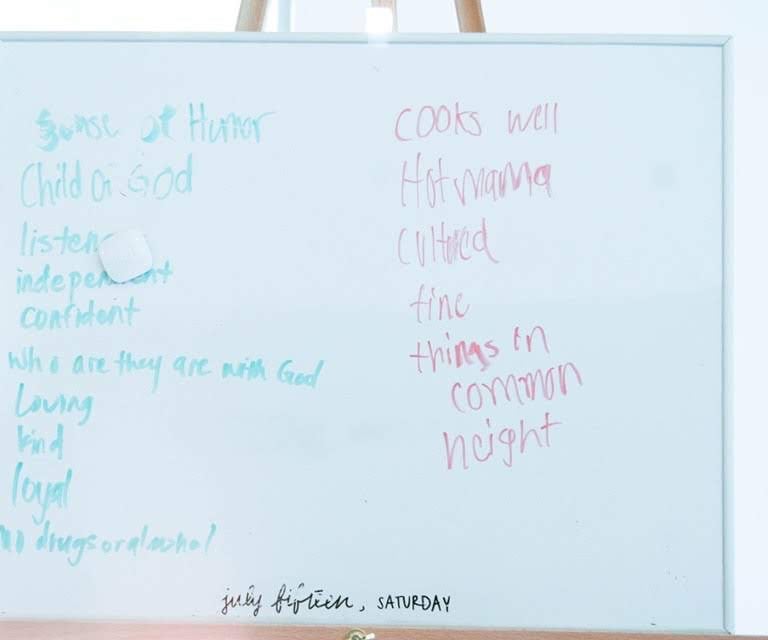 Sense of Humor
Child of God
listens
independent
confident
who are they are with God
Loving
kind
loyal
no drugs or alcohol
cooks well
Hot mama
cultured
fine
things in
common
height
july fifteen, SATURDAY